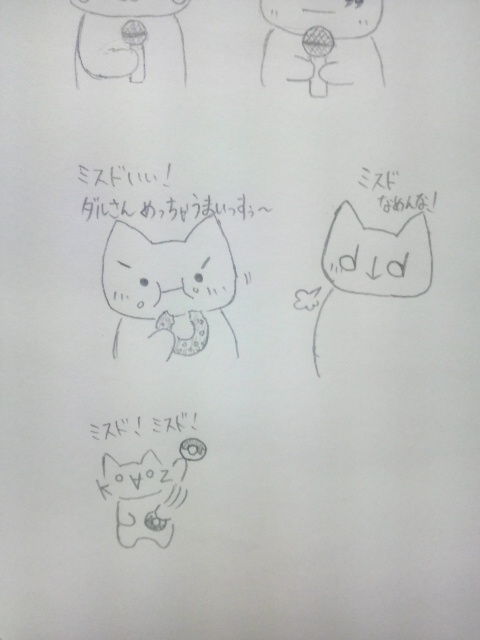 ミスドいい!
ダルさん めっちゃうまいっすぅ〜
ミスド
なめんな!
ミスド!ミスド!